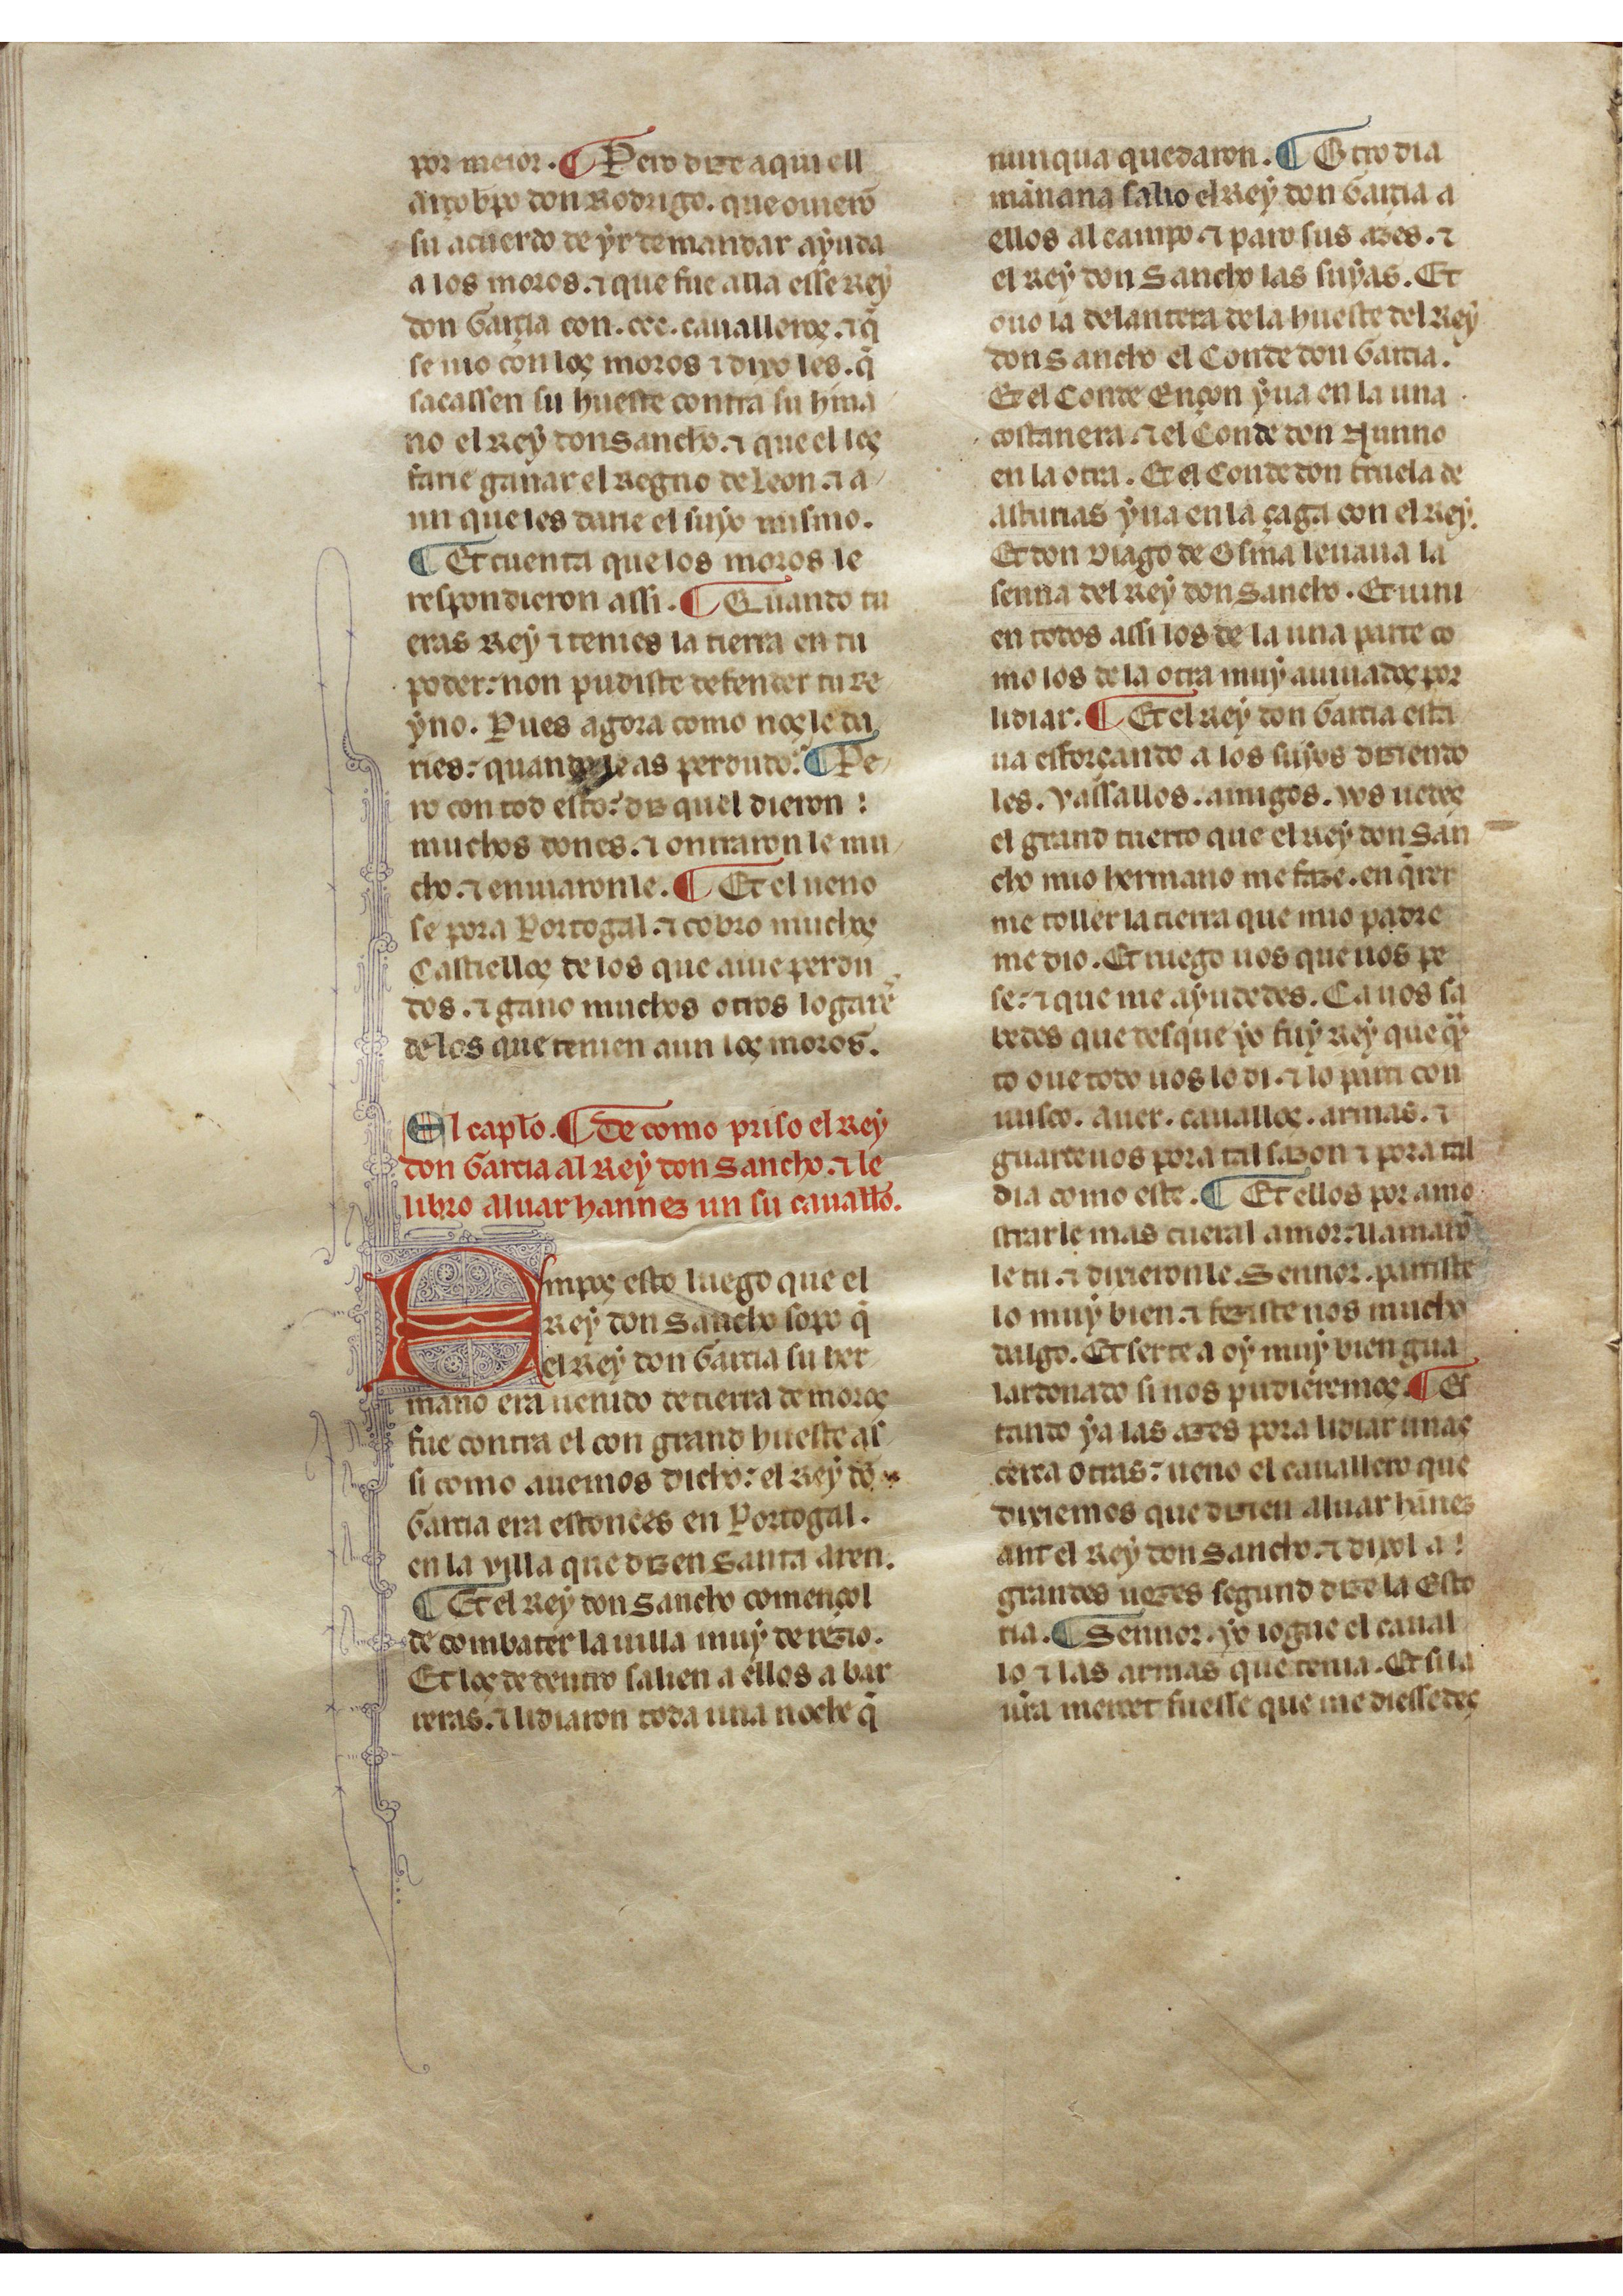 por meior. ¶ Pero dize aqui ell
arçobpo don Rodrigo. que ouierõ
su acuerdo de ẏr demandar aẏuda
a los moros. ⁊ que fue alla esse Reẏ
don Garçia con .ccc. caualleros. ⁊ q̃
se uio con los moros ⁊ dixo les. q̃
sacassen su hueste contra su hma
no el Reẏ don Sancho. ⁊ que el les
farie ganar el Regno de Leon. ⁊ a
un que les darie el suẏo mismo.
¶ Et cuenta que los moros le
respondieron assi. ¶ Quando tu
eras Reẏ ⁊ tenies la tierra en tu
poder: non pudiste defender tu Re
ẏno. Pues agora como nos le da
ries: quando le as perdudo. ¶ Pe
ro con tod esto: diz quel dieron
muchos dones. ⁊ onrraron le mu
cho. ⁊ enuiaronle. ¶ Et el ueno
se pora Portogal. ⁊ cobro muchos
Castiellos de los que auie perdu
dos. ⁊ gano muchos otros logarẽs
de los que tenien aun los moros.
El caplo. ¶ de como priso el Reẏ
don Garcia al Reẏ don Sancho. ⁊ le
libro aluar hannez un su cauallo.
Empos esto luego que el
Reẏ don Sancho sopo q̃
el Reẏ don Garcia su her
mano era uenido de tierra de moros
fue contra el con grand hueste as
si como auemos dicho: el Reẏ dõ
Garcia era estonces en Portogal.
en la villa que dizen Santa aren.
¶ Et el Reẏ don Sancho començol
de combater la uilla muẏ de rezio.
Et los de dentro salien a ellos a bar
reras. ⁊ lidiaron toda una noche q̃
nunqua quedaron. ¶ Otro dia
mañana salio el Reẏ don Garcia a
ellos al campo ⁊ paro sus azes. ⁊
el Reẏ don Sancho las suẏas. Et
ouo la delantera de la hueste del Reẏ
don Sancho el Conde don Garcia.
Et el Conde Ençon ẏua en la una
costanera. ⁊ el Conde don Nunno
en la otra. Et el Conde don fruela de
asturias ẏua en la çaga con el Reẏ.
Et don Diago de Osma leuaua la
senna del Reẏ don Sancho. Et uini
en todos assi los de la una parte co
mo los de la otra muẏ auiuados por
lidiar. ¶ Et el Reẏ don Garcia esta
ua esforçando a los suẏos diziendo
les. Vassallos. amigos. vos uedes
el grand tuerto que el Reẏ don San
cho mio hermano me faze. en q̃rer
me toller la tierra que mio padre
me dio. Et ruego uos que uos pe
se: ⁊ que me aẏudedes. Ca uos sa
bedes que desque ẏo fuẏ Reẏ que q̃n
to oue todo uos lo di. ⁊ lo parti con
uusco. auer. cauallos. armas. ⁊
guardeuos pora tal sazon ⁊ pora tal
dia como este. ¶ Et ellos por amo
strarle mas cueral amor: llamarõ
le tu. ⁊ dixieronle. Sennor. partiste
lo muẏ bien. ⁊ feziste nos mucho
dalgo. Et serte a oẏ muẏ bien gua
lardonado si nos pudieremos. ¶ Es
tando ẏa las azes pora lidiar unas
cerca otras: ueno el cauallero que
dixiemos que dizien aluar hãnez
ant el Reẏ don Sancho. ⁊ dixol a
grandes uezes segund dize la Esto
ria. ¶ Sennor. ẏo iogue el caual
lo ⁊ las armas que tenia. Et si la
ur̃a mercet fuesse que me diessedes